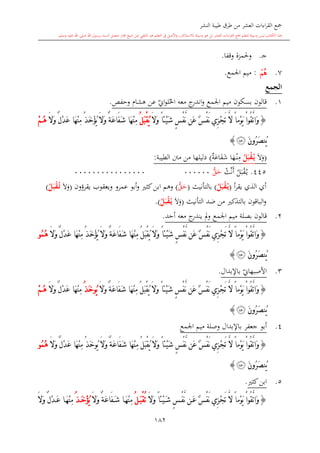 جمع القراءات العشر من طرق طيبة النشر
جـ. ولحمزة وقفا.
٧. هُمْ : ميم الجمع.
الجمع
١. قالون بسكون ميم الجمع واندرج معه الحلواني عن هشام وحفص.
﴿ وَاتَّقُوا يَوْمًا لَا تَجْزِي نَفْسٌ عَن نَّفْسٍ شَيْئًا وَلَا يُقْبَلُ مِنْهَا شَفَاعَةٌ وَلَا يُؤْخَذُ مِنْهَا عَدْلٌ وَلَا هُمْ
يُنصَرُونَ ﴾
(وَلَا يُقْبَلُ مِنْهَا شَفَاعَةٌ) دليلها من متن الطيبة:
٤٤٥. يُقْبَلُ أَنِّثْ حَقُّ
أي الذي يقرأ (يُقْبَلُ) بالتأنيث (حَقُّ) وهم ابن كثير وأبو عمرو ويعقوب يقرؤون (وَلَا تُقْبَلُ)
والباقون بالتذكير من ضد التأنيث (وَلَا يُقْبَلُ).
٢. قالون بصلة ميم الجمع ولم يندرج معه أحد.
﴿ وَاتَّقُوا يَوْمًا لَا تَجْزِي نَفْسٌ عَن نَّفْسٍ شَيْئًا وَلَا يُقْبَلُ مِنْهَا شَفَاعَةٌ وَلَا يُؤْخَذُ مِنْهَا عَدْلٌ وَلَا هُمُو
يُنصَرُونَ ﴾
٣. الأصبهاني بالإبدال.
﴿ وَاتَّقُوا يَوْمًا لَا تَجْزِي نَفْسٌ عَن نَّفْسٍ شَيْئًا وَلَا يُقْبَلُ مِنْهَا شَفَاعَةٌ وَلَا يُوخَذُ مِنْهَا عَدْلٌ وَلَا هُمْ
يُنصَرُونَ ﴾
٤. أبو جعفر بالإبدال وصلة ميم الجمع
﴿ وَاتَّقُوا يَوْمًا لَا تَجْزِي نَفْسٌ عَن نَّفْسٍ شَيْئًا وَلَا يُقْبَلُ مِنْهَا شَفَاعَةٌ وَلَا يُوخَذُ مِنْهَا عَدْلٌ وَلَا هُمُو
يُنصَرُونَ ﴾
٥. ابن كثير.
﴿ وَاتَّقُوا يَوْمًا لَا تَجْزِي نَفْسٌ عَن نَّفْسٍ شَيْئًا وَلَا تُقْبَلُ مِنْهَا شَفَاعَةٌ وَلَا يُؤْخَذُ مِنْهَا عَدْلٌ وَلَا
١٨٢